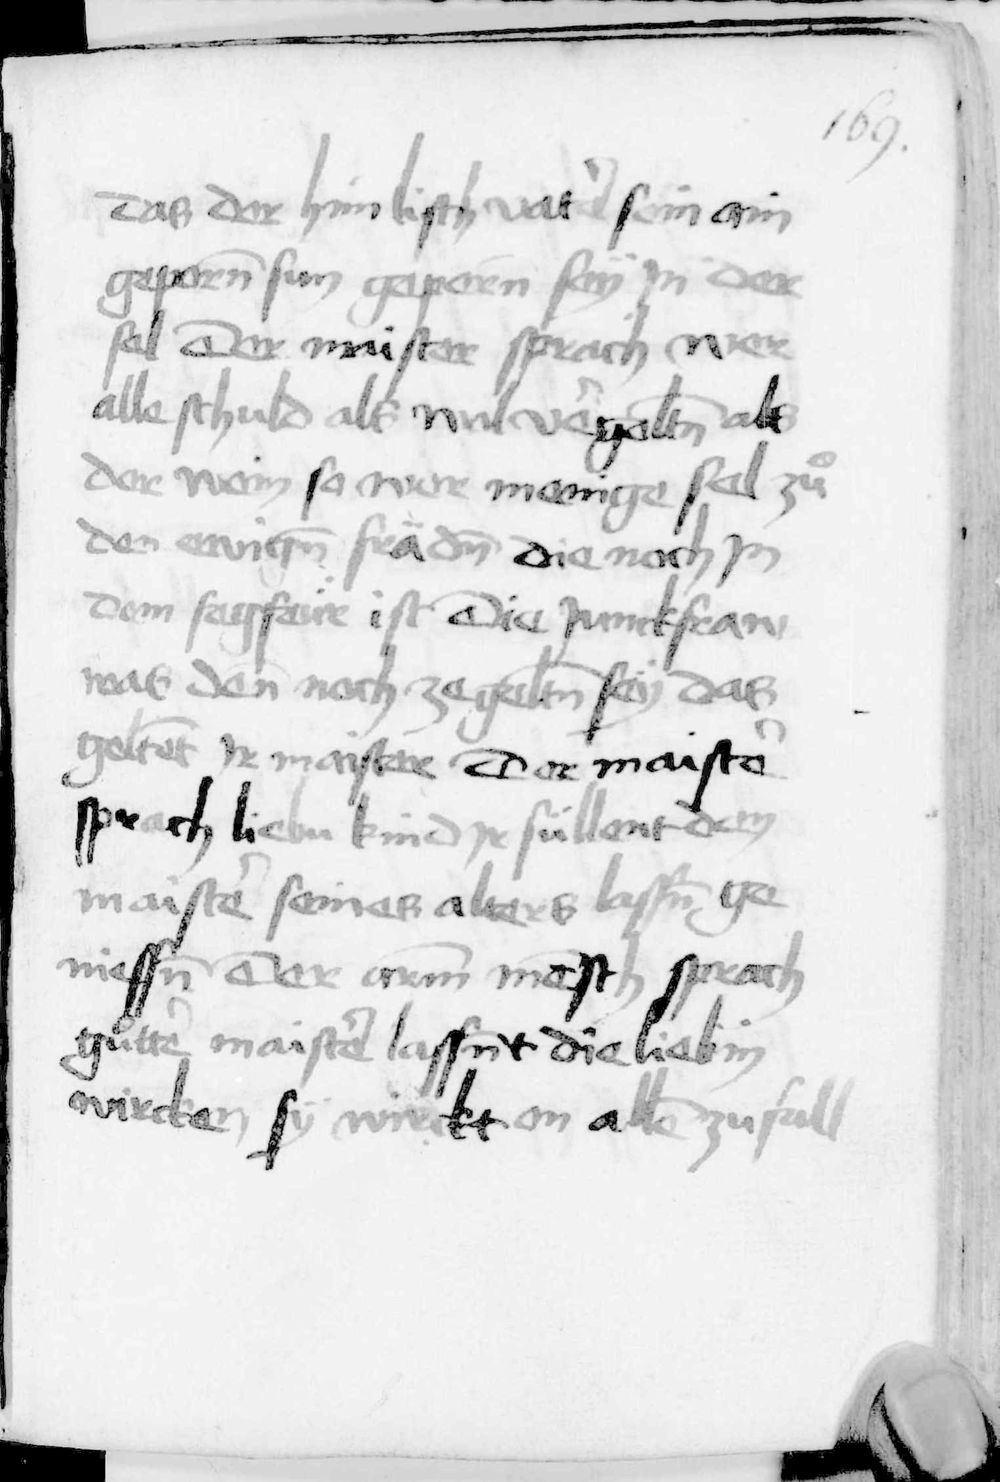 169.
das der himlisch vatẽ sein ain
geporñ sun geporñ seÿ jn der
sel Der maister sprach wer
alle schuld als wil vẽgeltñ als
der wein so wer menige sel zů
den ewigñ frädñ die noch jn
dem fegfeüre ist Die junckfraw
was deñ noch ze geltñ seÿ das
geltẽt jr maister Der maistẽ
sprach liebu kind jr süllent dem
maistẽ seines alters lassñ ge
niessñ Der arm̃ mẽsch sprach
gůttẽ maistẽ lassñt die liebin
wircken sÿ wirckt on allẽ zufall